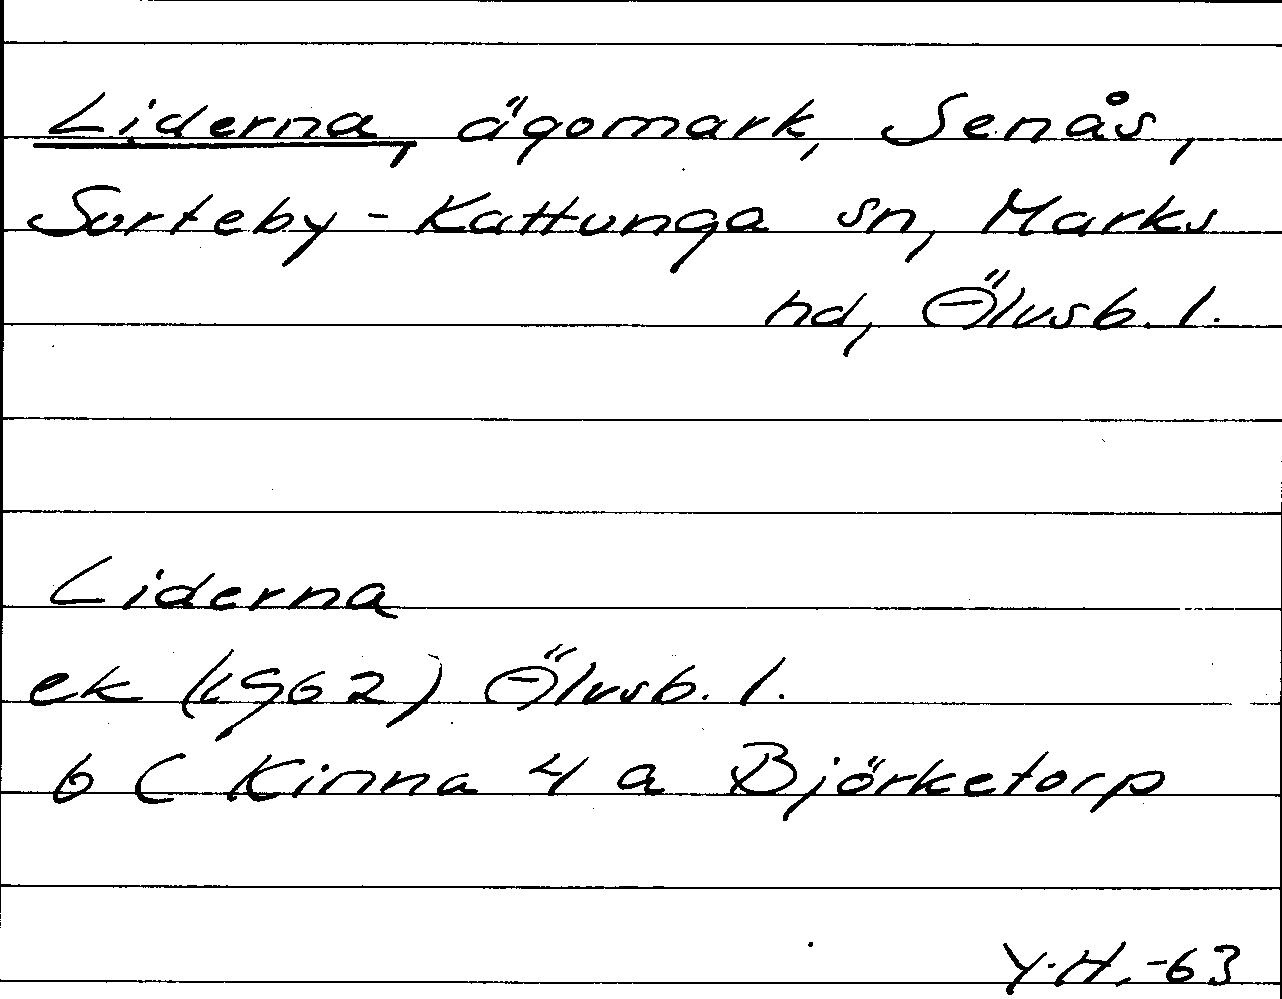 Liderna, ägomark, Senås,
Surteby-Kattunga sn, Marks
hd, Älvsb. l.
Liderna
ek (1962) Älvsb. l.
6 C Kinna 4 a Björketorp
Y.H.-63